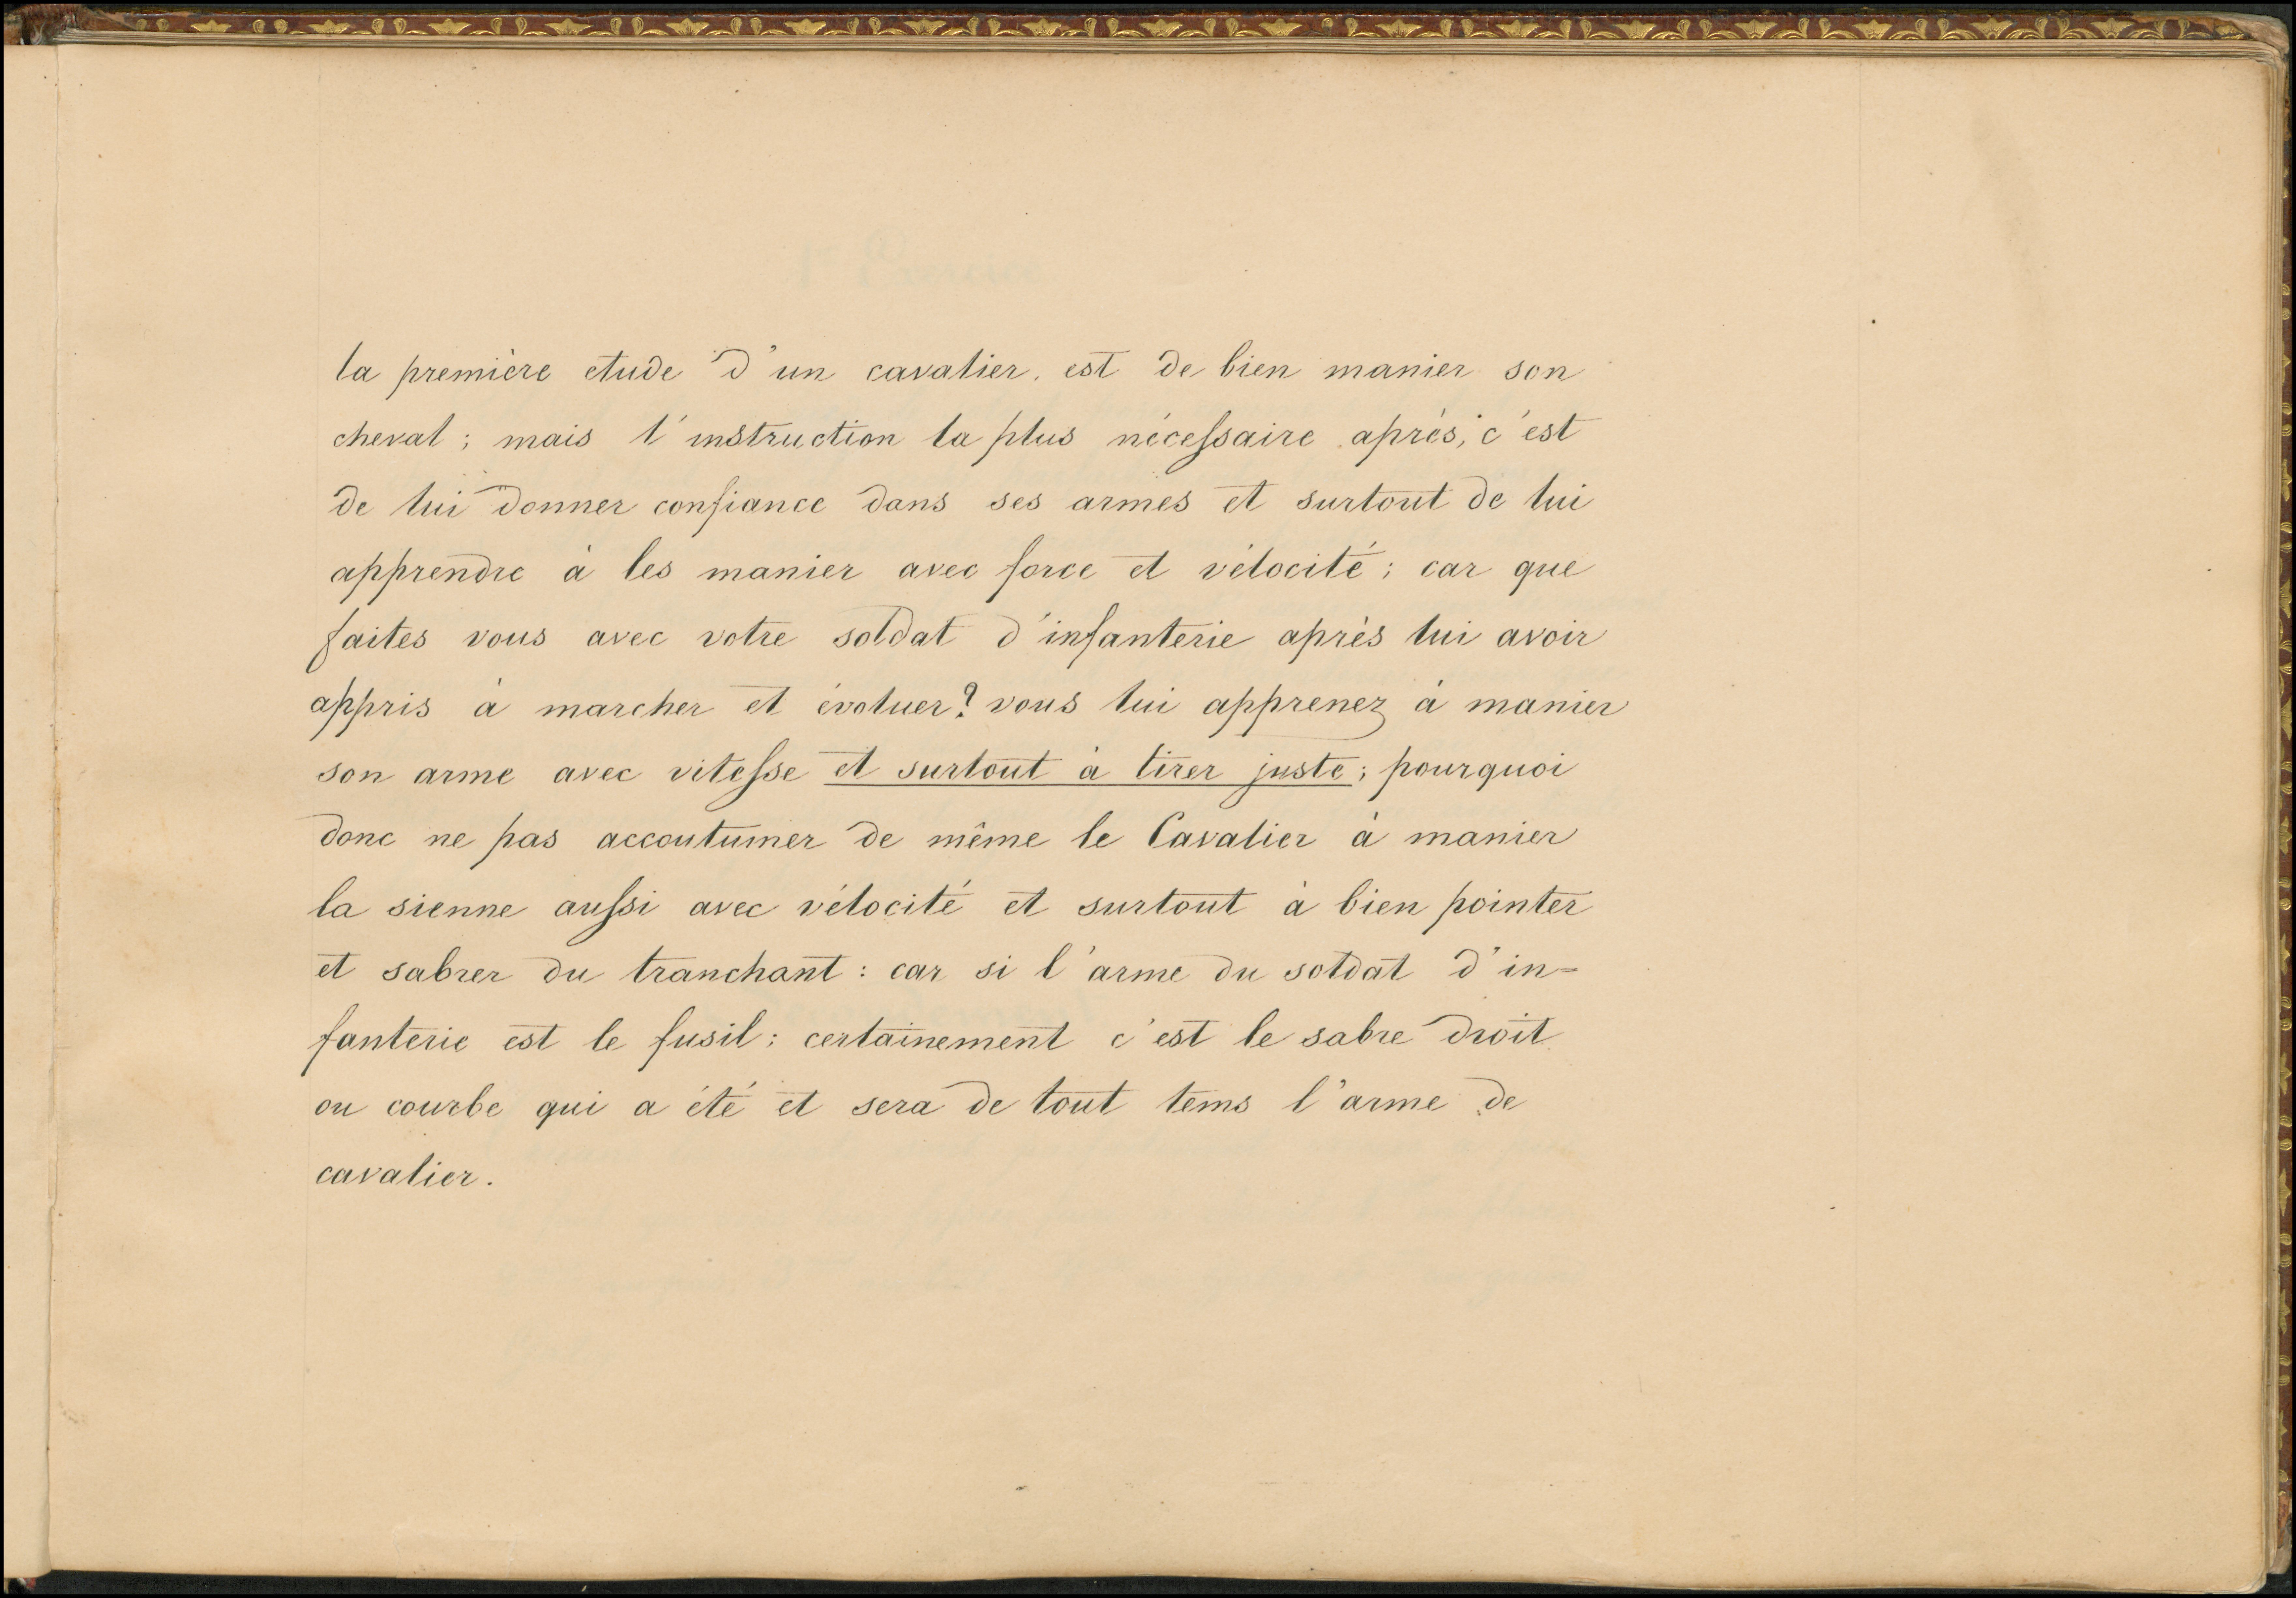 la première etude d'un cavalier. est de bien manier son
cheval; mais l'instruction la plus nécessaire après, c'est
de lui donner confiance dans ses armes et surtout de lui
apprendre à les manier avec force et vélocité; car que
faites vous avec votre soldat d'infanterie après lui avoir
appris à marcher et évoluer? vous lui apprenez à manier
son arme avec vitesse et surtout à tirer juste; pourquoi
donc ne pas accoutumer de même le Cavalier à manier
la sienne aussi avec vélocité et surtout à bien pointer
et sabrer du tranchant: car si l'arme du soldat d'in=
fanterie est le fusil; certainement c'est le sabre droit
ou courbe qui a été et sera de tout tems l'arme de
cavalier.